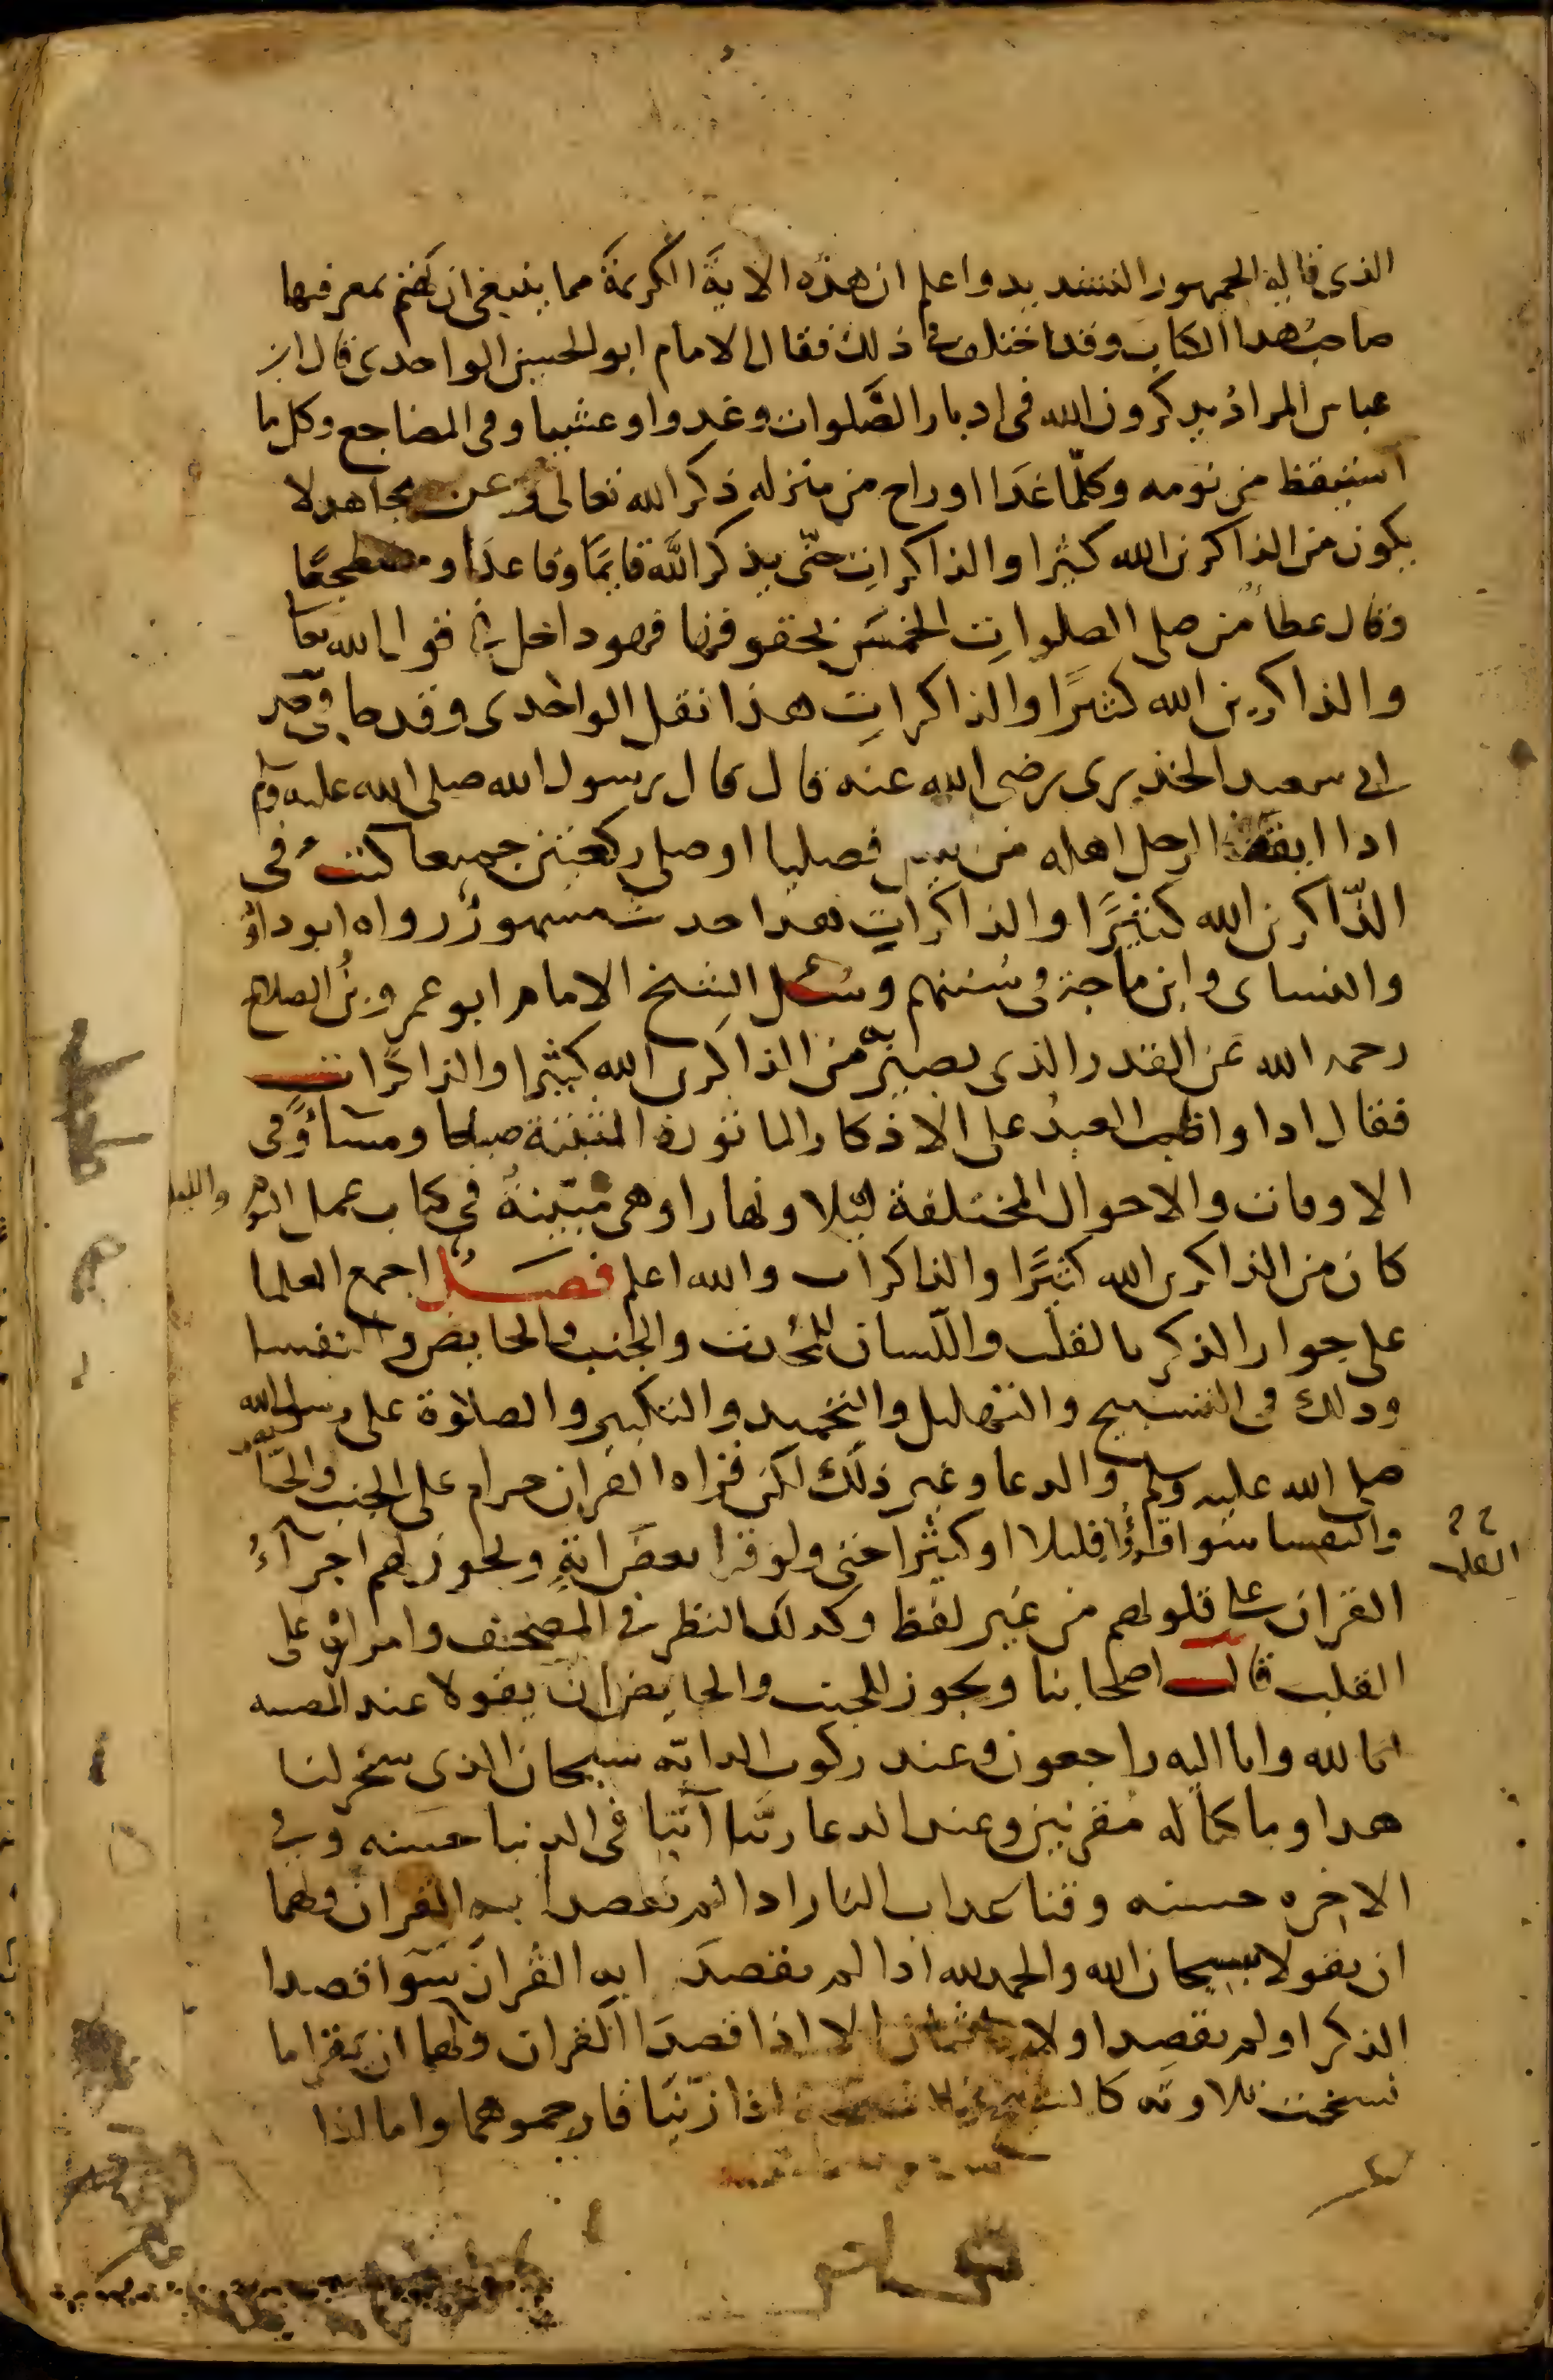 الذي قاله الجمهور التشديد واعلم ان هذه الاية الكريمة مما ينبغي ان يهتم بمعرفتها
صاحبُ هدا الكتاب وقد اختلف في ذلك فقال الامام ابو الحسن الواحدي قال ابن
عباس المرادُ يدكرون الله في ادبار الصَّلوات وغدوا وعشيا وفي المضاجع وكل ما
استيقظ من نومه وكلّما غَدَا او راح من منزله ذكر الله تعالى وعن مجاهد لا
يكون من الذاكرين الله كثيرا والذاكراتِ حتّى يذكر اللَّه قايمًا وقاعدًا ومضطجعًا
وقال عطاءٌ من صلى الصلواتِ الخمسَ بحقوقها فهو داخل في قول الله تعا
والذاكرين الله كثيرًا والذاكراتِ هذا نقل الواحدي وقد جا في حد
ابي سعيد الخذيري رضي الله عنه قال قال رسول الله صلى الله عليه وسلم
ادا ايقظ الرجل اهله من فصليا او صلى ركعتين جميعا كتبُ في
الذّاكرين الله كثيرًا والذاكراتِ هدا حدث مشهورٌ رواه ابو داوُد
والنساى وابن ماجة في سُننهم وسُئل الشيخ الامام ابو عمرو بنُ الصلاح
رحمه الله عن القدر الذي يصير به من الذاكرين الله كثيرا والذاكرات
فقال ادا واظب العبدُ على الاذكار الماثورة المثبتة صباحا ومساءً وفي
الاوقات والاحوال المختلفة ليلا ونهارا وهي مُبيّنةُ في كتاب عمل اليوم والليله
كان من الذاكرين الله كثيرًا والذاكرات والله اعلم فصــل اجمع العلما
على جواز الذكر بالقلب واللّسان للمُحدث والجنب والحايض والنفسا
ودلك في التسبيح والتهليل والتحميد والتكبير والصلاة على رسول الله
صلى الله عليه وسلم والدعا وغير ذلك لكن قراة القران حرام على الجنب والحا يض
والنفسا سوا قراءُ قليلا او كثيرا حتى ولو قرا بعضَ ايةٍ ويجوز لهم اجراءُ
القران على قلوبهم من غير لفظ وكدلك النظر في المصحف وامراره على
القلب قال اصحابنا ويجوز للجنب والحايض ان يقولا عند المصيبه
انا لله وانا اليه راجعون وعند ركوب الدابّه سبحان الذي سخر لنا
هدا وما كنا له مُقرنين وعند الدعا ربّنا آتنا في الدنيا حسنه وفي
الاخره حسنه وقنا عداب النار ادا لم يقصدا به القران ولهما
ان يقولا بسم سبحان الله والحمد لله اذا لم يقصدَا به القُران سَوا قصدا
الذكر او لم يقصدا ولا ياثمان الا اذا قصدَا القران ولهما ان يقرا ما
نسخت تلاوته كالشيخ والشيخة اذا زنيا فارجموهما واما اذا
القلب